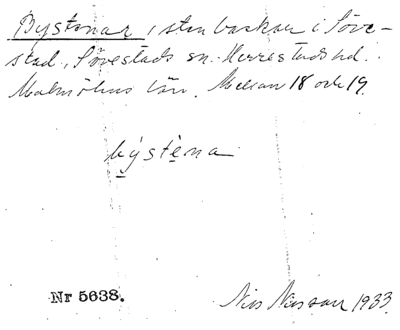 Bystenar, sten backar i Söve-
stad, Sövestads sn. Herrestads hd.
Malmöhus län. Mellan 18 och 19.
býste̱na
Nr 5638.
Nils Nilsson 1933.